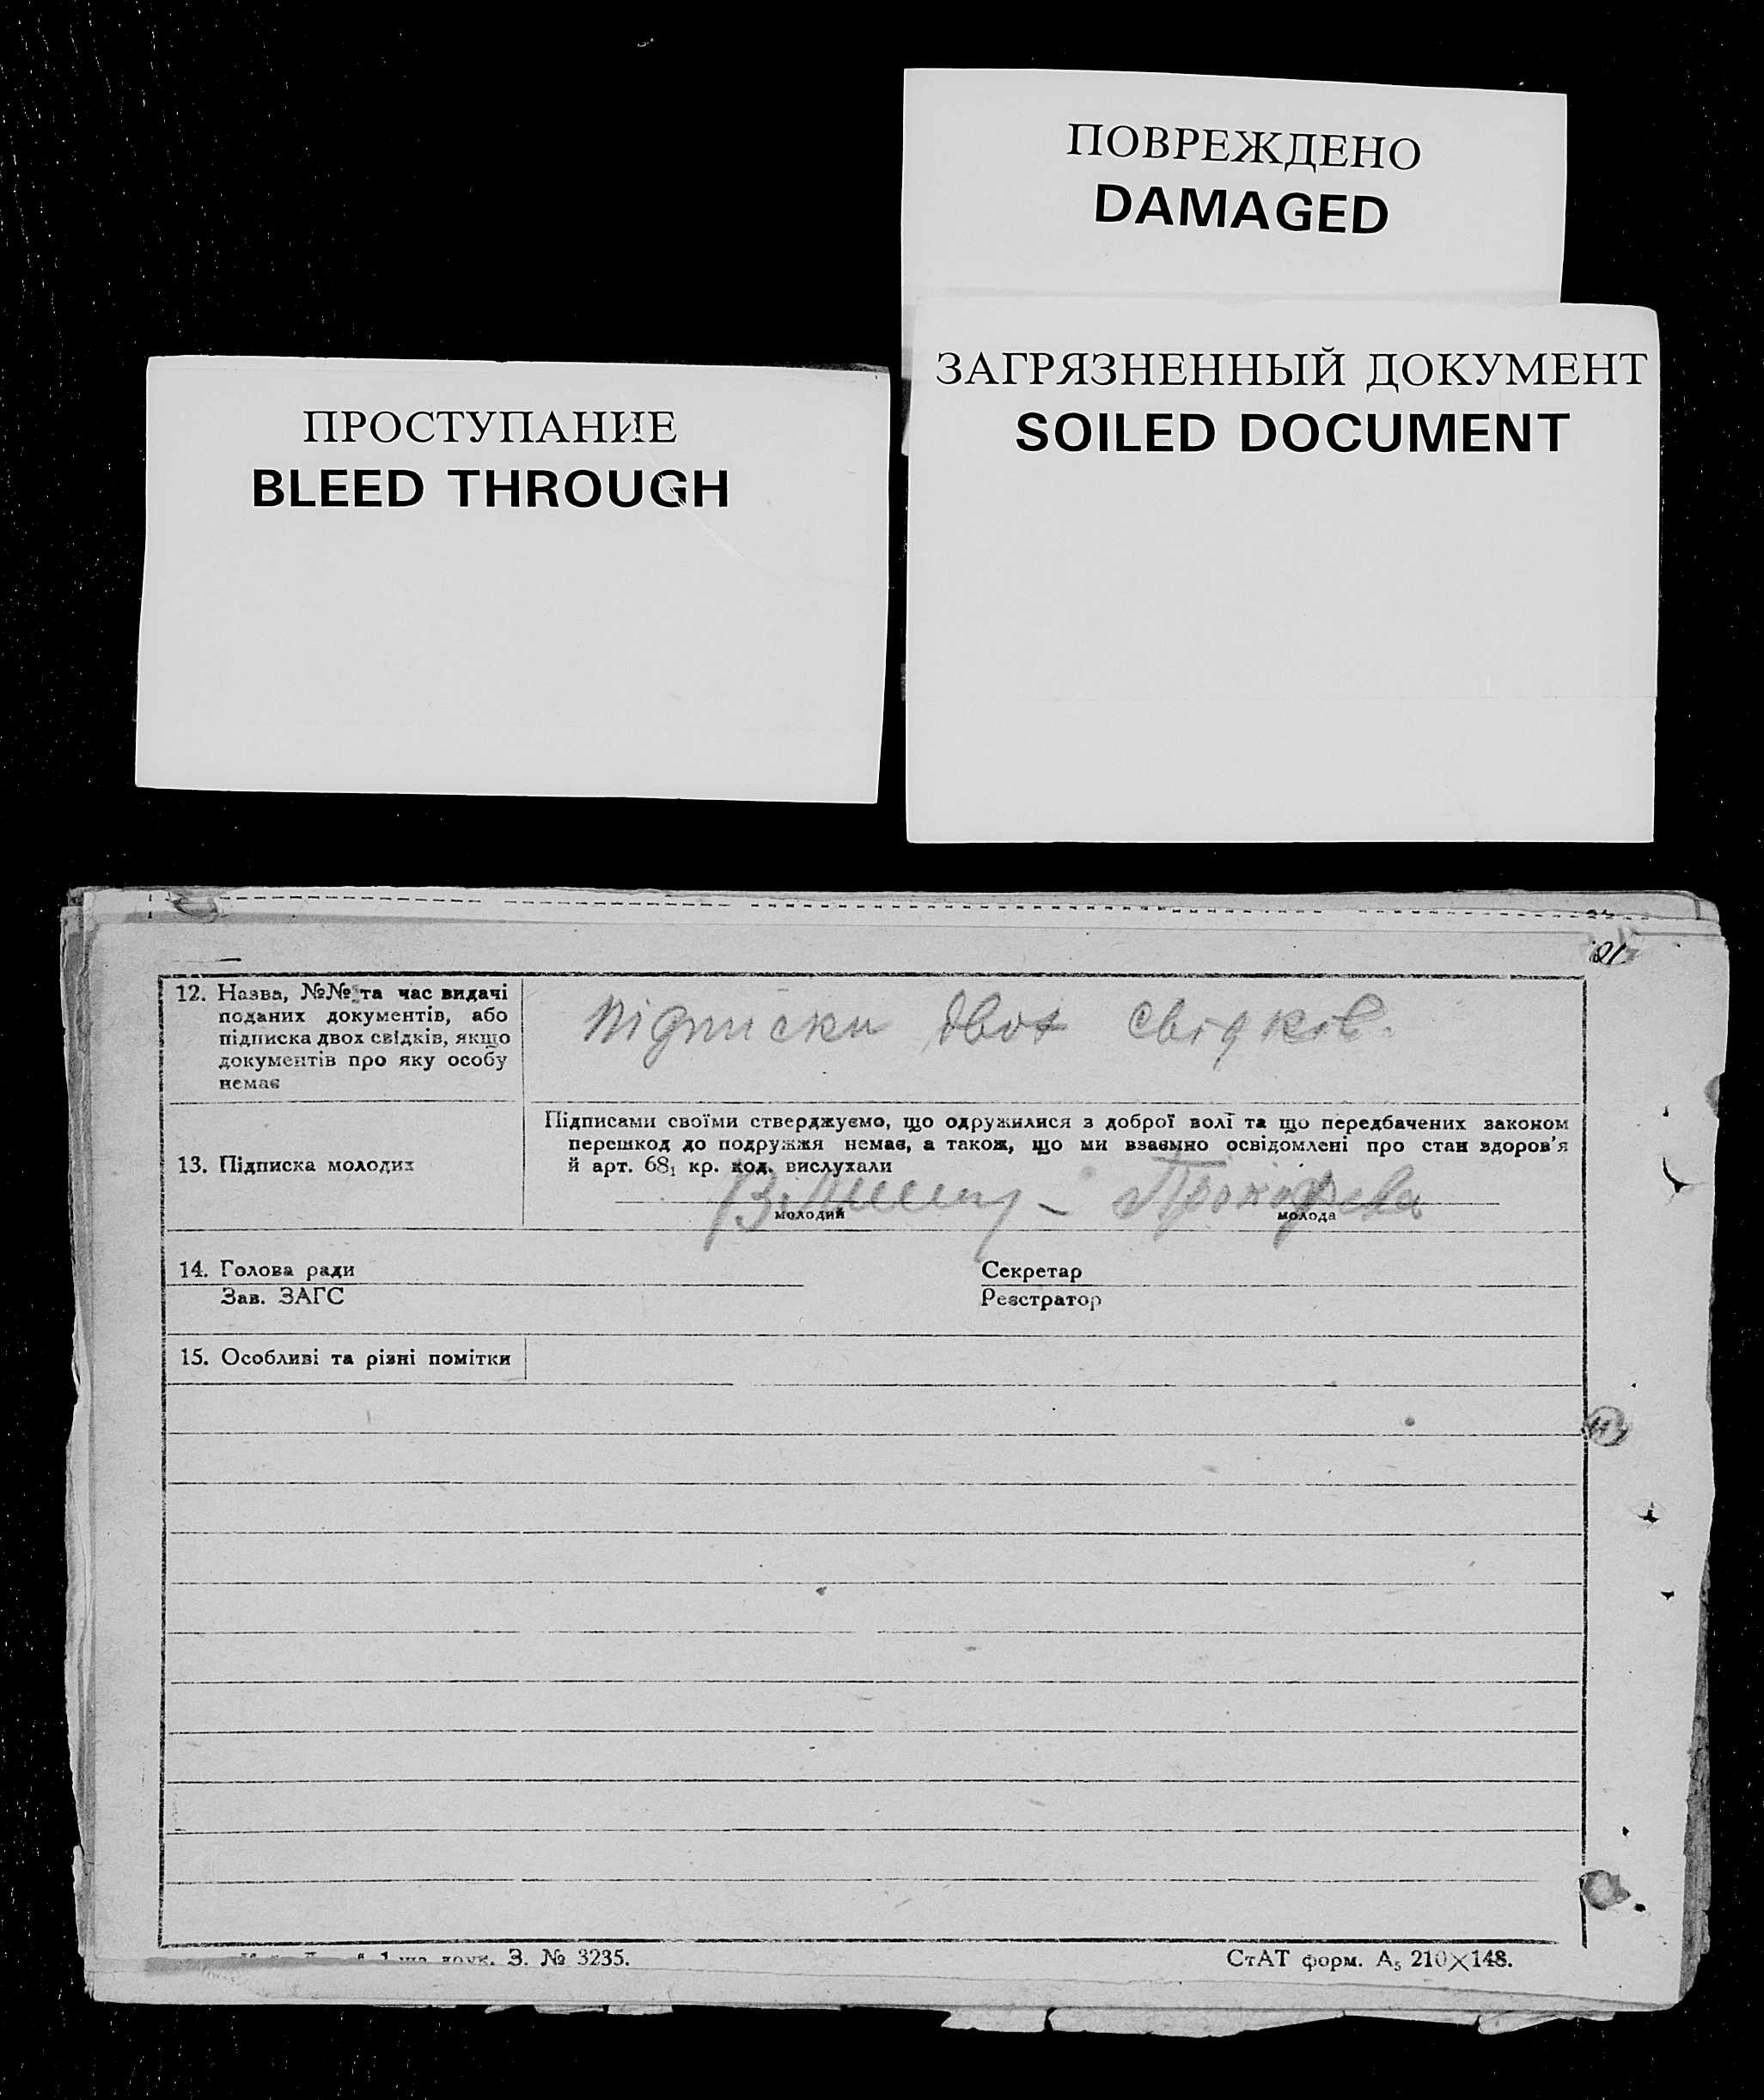 ПОВРЕЖДЕНО
DAMAGED
ЗАГРЯЗНЕННЫЙ ДОКУМЕНТ
SOILED DOCUMENT
ПРОСТУПАНИЕ
BLEED THROUGH
12. Назва, №№ та час видачі
поданих документів, або
підписка двох свідків, якщо
документів про яку особу
немає
Підписки двох свідків.
Підписами своїми стверджуємо, що одружилися з доброї волі та що передбачених законом
перешкод до подружжя немає, а також, що ми взаємно освідомлені про стан здоров'я
й арт. 68₁ кр. код. вислухали
13. Підписка молодих
молодий
молода
14. Голова ради
Секретар
Зав. ЗАГС
Реєстратор
15. Особливі та різні помітки
друк. З. № 3235.
СтАТ форм. А₅ 210×148.